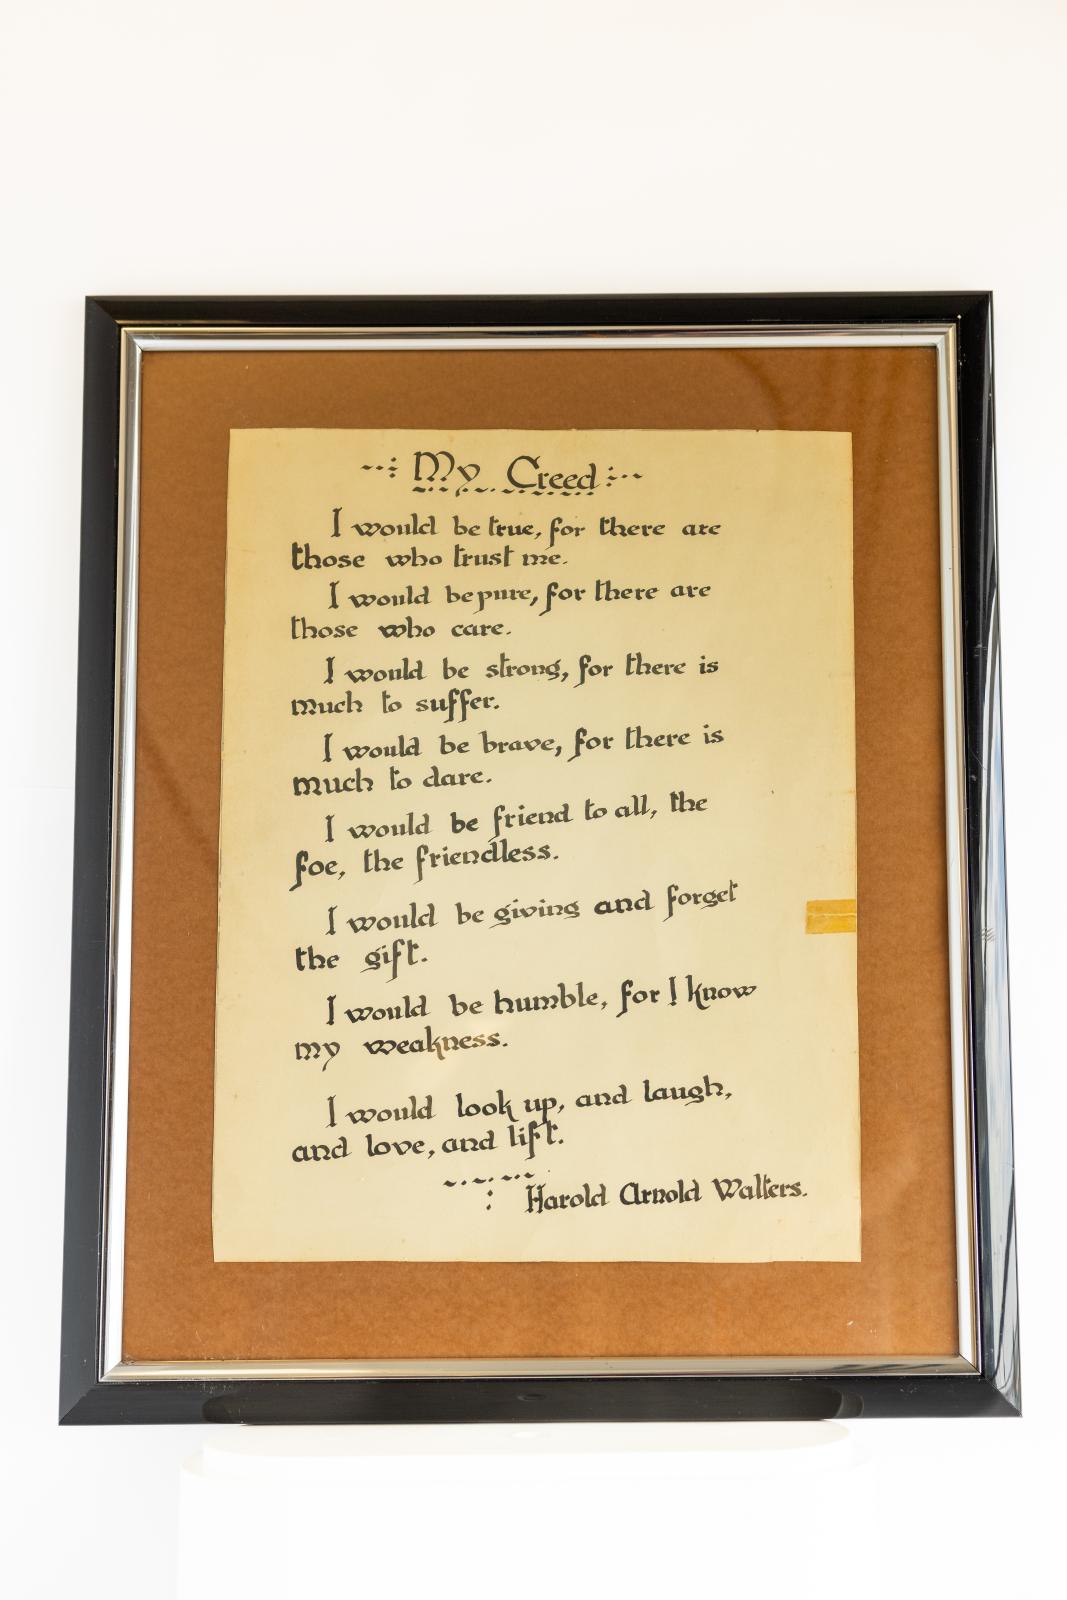 My Creed
I would be true, for there are
those who trust me.
I would be pure, for there are
those who care.
I would be strong, for there is
much to suffer.
I would be brave, for there is
much to dare.
I would be friend to all, the
foe, the friendless.
I would be giving and forget
the gift.
I would be humble, for I know
my weakness.
I would look up, and laugh,
and love, and lift.
Harold Arnold Walters.